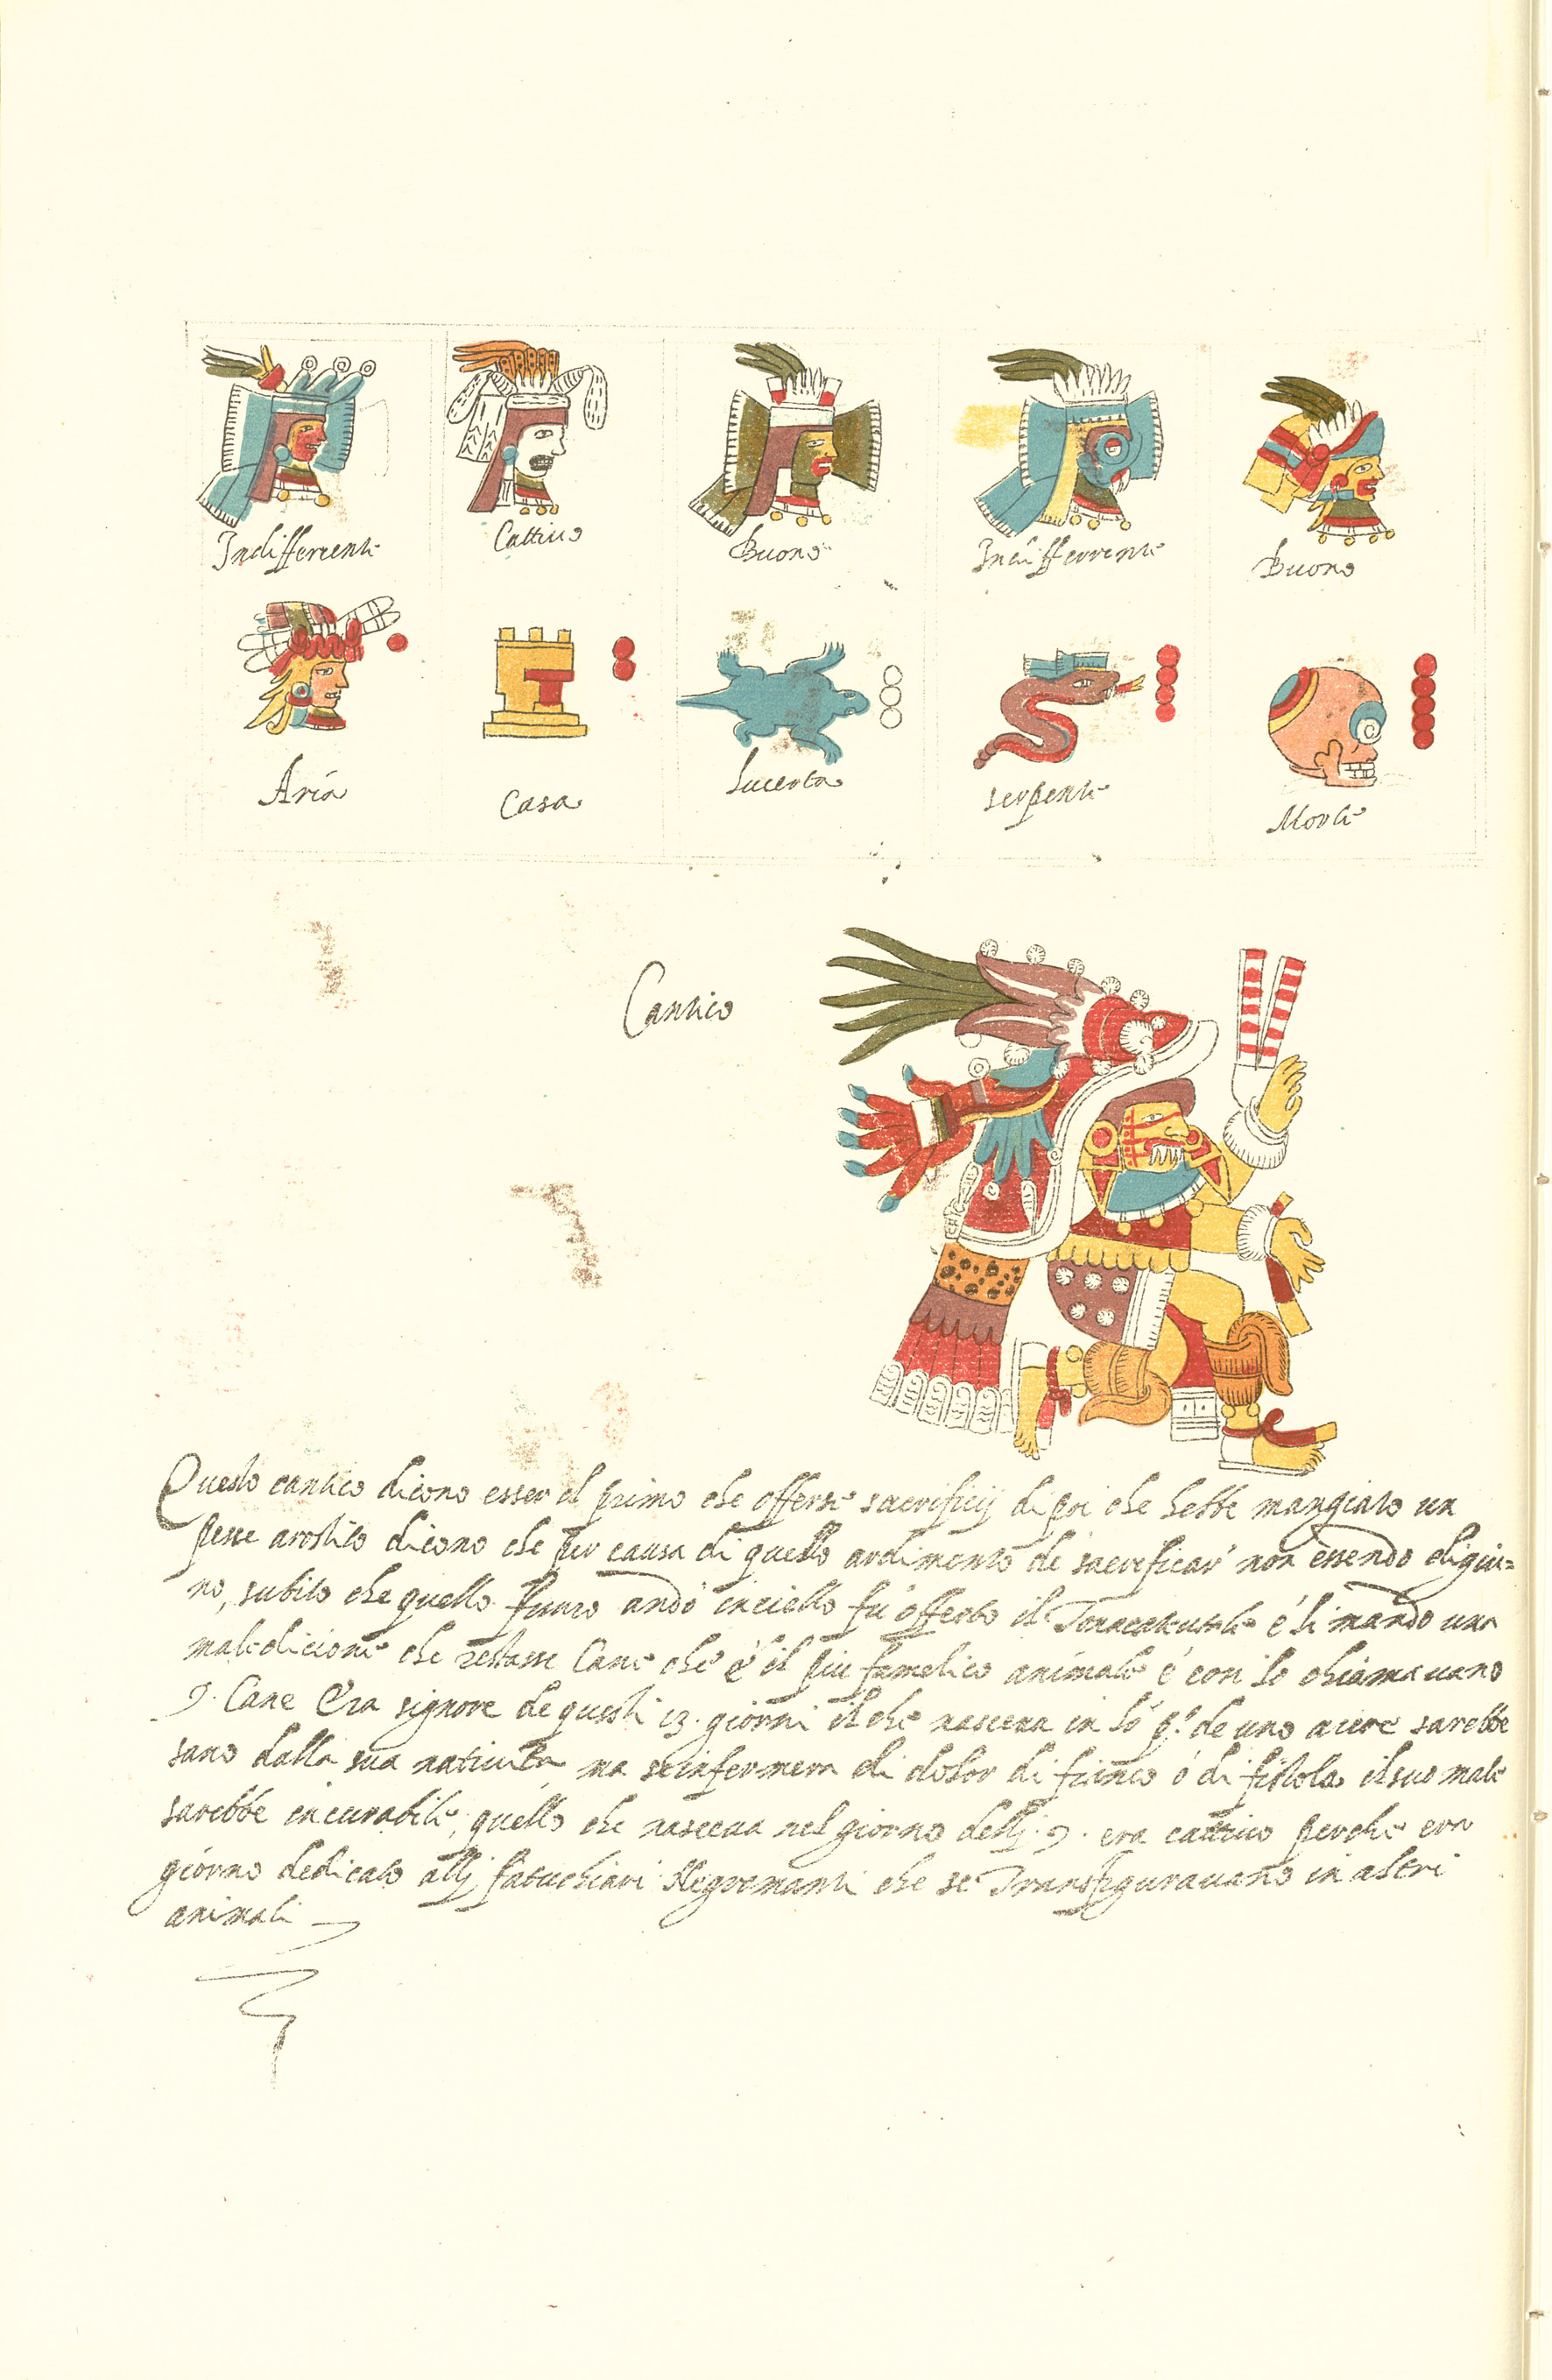 Indifferente Cattiuo Buono Indifferente Buono
Aria Casa Lucerta serpente Morte
Cantico
Questo cantico dicono esser il primo che offerse sacrificij di poi che hebbe mangiato un
pesce arostito dicono che per causa di questo ardimento de sacrificar non essendo digiu=
no, subito che quello fumo andò in ciello fù offerto il Tonacatecutle é li mandò una
maledicione che restasse Cane che é il piu famelico animale é cosi lo chiamauano
9. Cane Era signore de questi 13. giorni il che nasceua in lo p.º de uno aiere sarebbe
sano dalla sua natiuita, ma se infermaua di dolor di fianco ó di fistola il suo male
sarebbe incurabile, quello che nasceua nel giorno delli 9. era cattiuo perche era
giorno dedicato alli fatuchiari Negromanti che se Transfigurauano in altri
animali